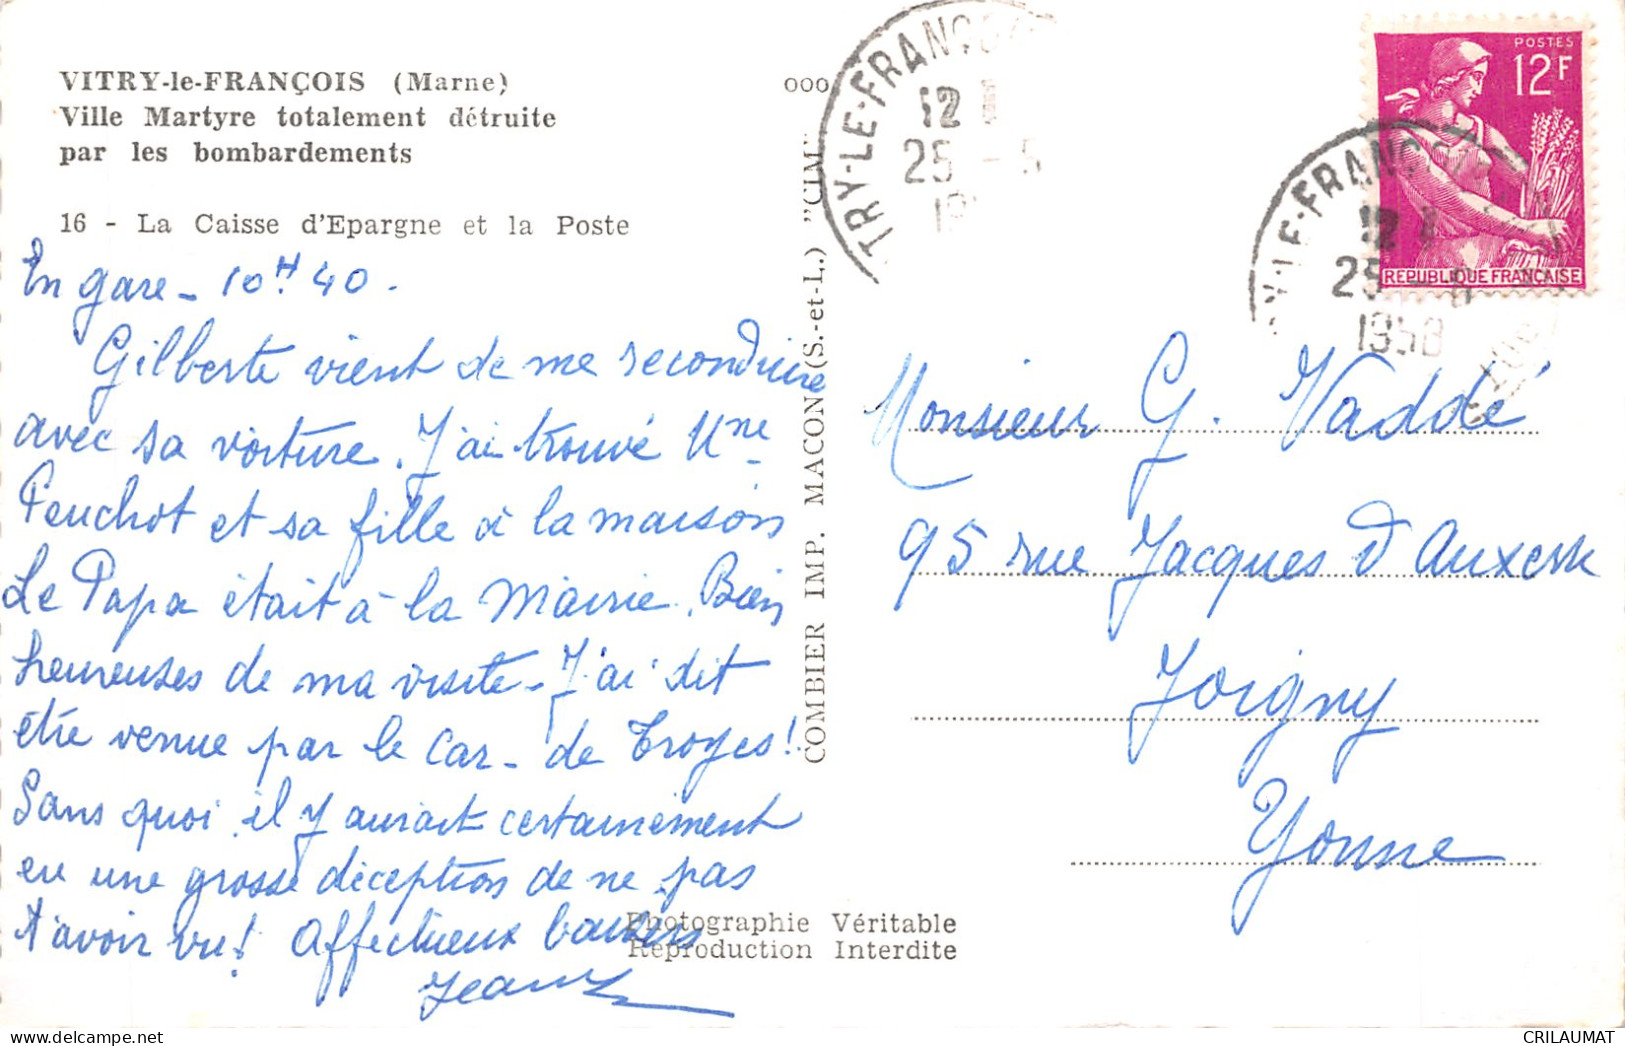 VITRY-le-FRANÇOIS (Marne)
Ville Martyre totalement détruite
par les bombardements
16 - La Caisse d'Epargne et la Poste
En gare - 10H 40 -
Gilberte vient de me reconduire
avec sa voiture. J'ai trouvé Mme
Peuchot et sa fille à la maison
Le Papa était à la Mairie. Bien
heureuses de ma visite - J'ai dit
être venue par le car - de Troyes!
Sans quoi, il y aurait certainement
eu une grosse déception de ne pas
t'avoir vu! Affectueux baisers
COMBIER IMP. MACON (S.-et-L.) "CIM"
Photographie Véritable
Reproduction Interdite
000
TRY-LE-FRANÇOI
12
25 -5
POSTES
12F
REPUBLIQUE FRANÇAISE
Y-LE-FRANÇOI
12
25
1958
Monsieur G. Vaddé
95 rue Jacques d'Auxerre
Joigny
Yonne
CRILAUMAT